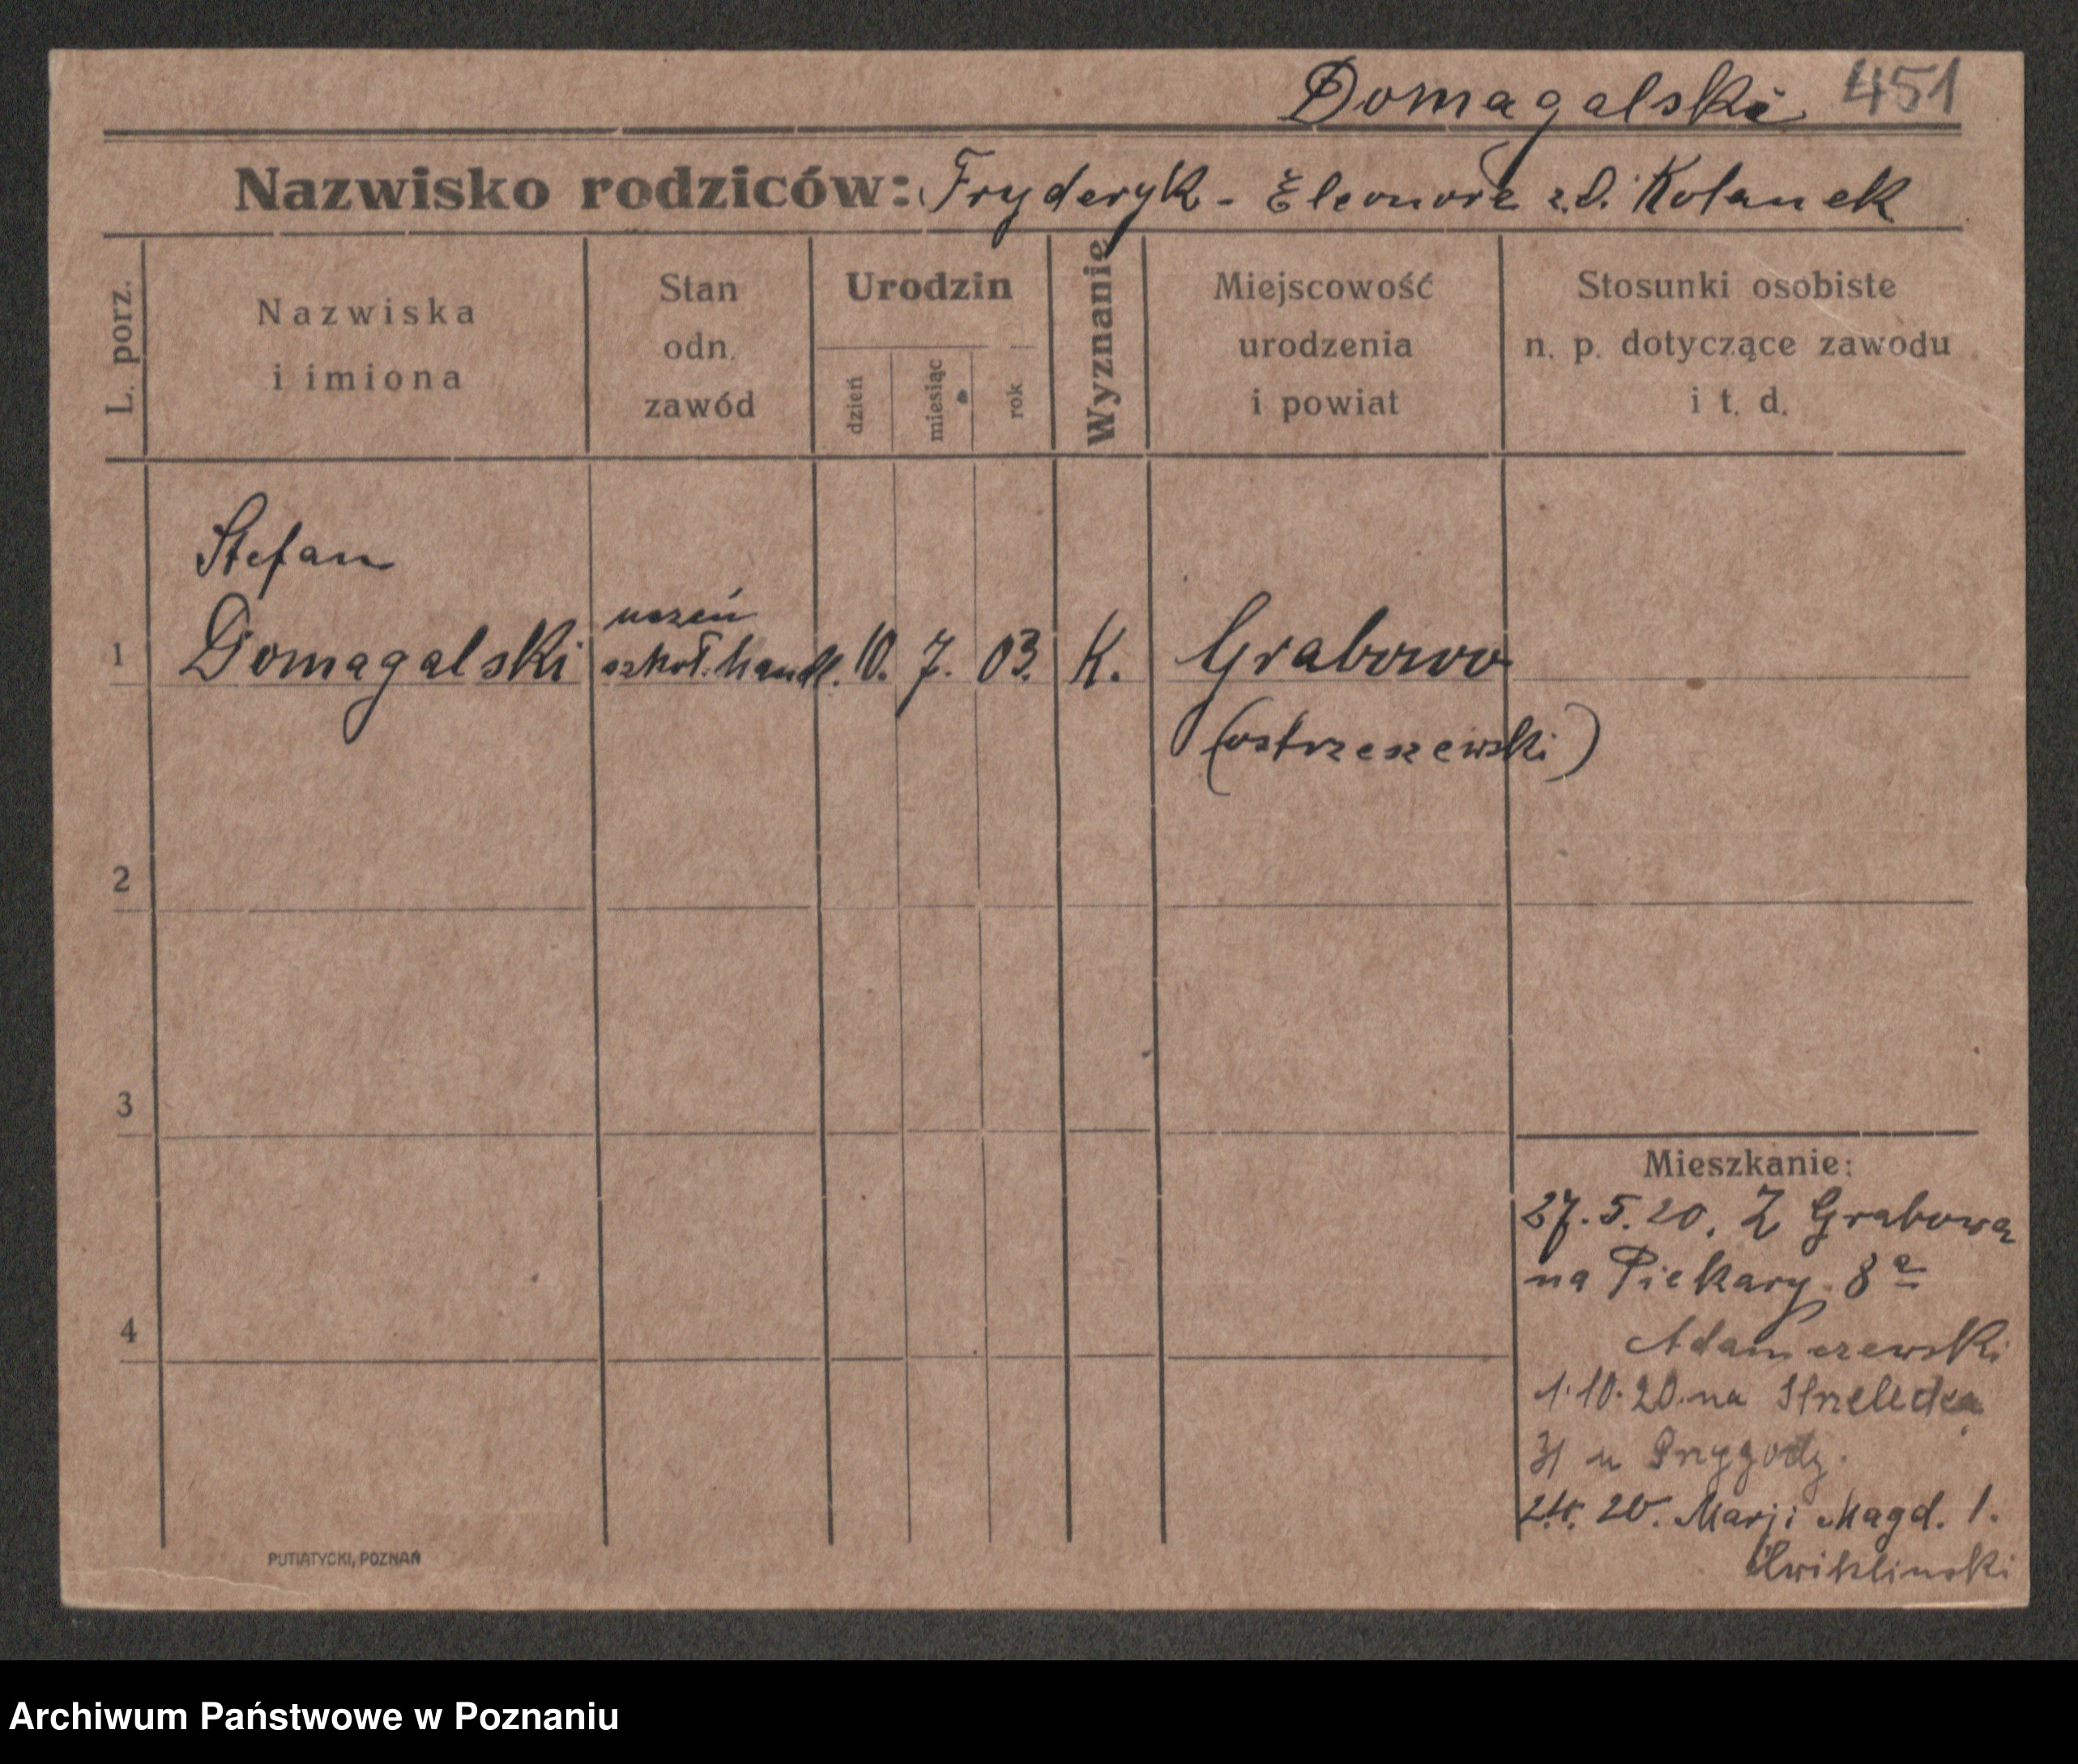 Domagalski 451
Nazwisko rodziców: Fryderyk - Eleonore z.d. Kolanek
L. porz.
Nazwiska
i imiona
Stan
odn.
zawód
Urodzin
dzień
miesiąc
rok
Wyznanie
Miejscowość
urodzenia
i powiat
Stosunki osobiste
n. p. dotyczące zawodu
i t. d.
Stefan
uczeń
1 Domagalski szkoł. handl. 10. 7. 03. K. Grabowo
(ostrzeszewski)
2
3
4
Mieszkanie:
27. 5. 20. Z Grabowa
na Piekary 8a
Adamczewski
1. 10. 20. na Strzelecka
31 u Przygody.
20. Marji Magd. 1.
Cwiklinski
PUTIATYCKI, POZNAŃ
Archiwum Państwowe w Poznaniu